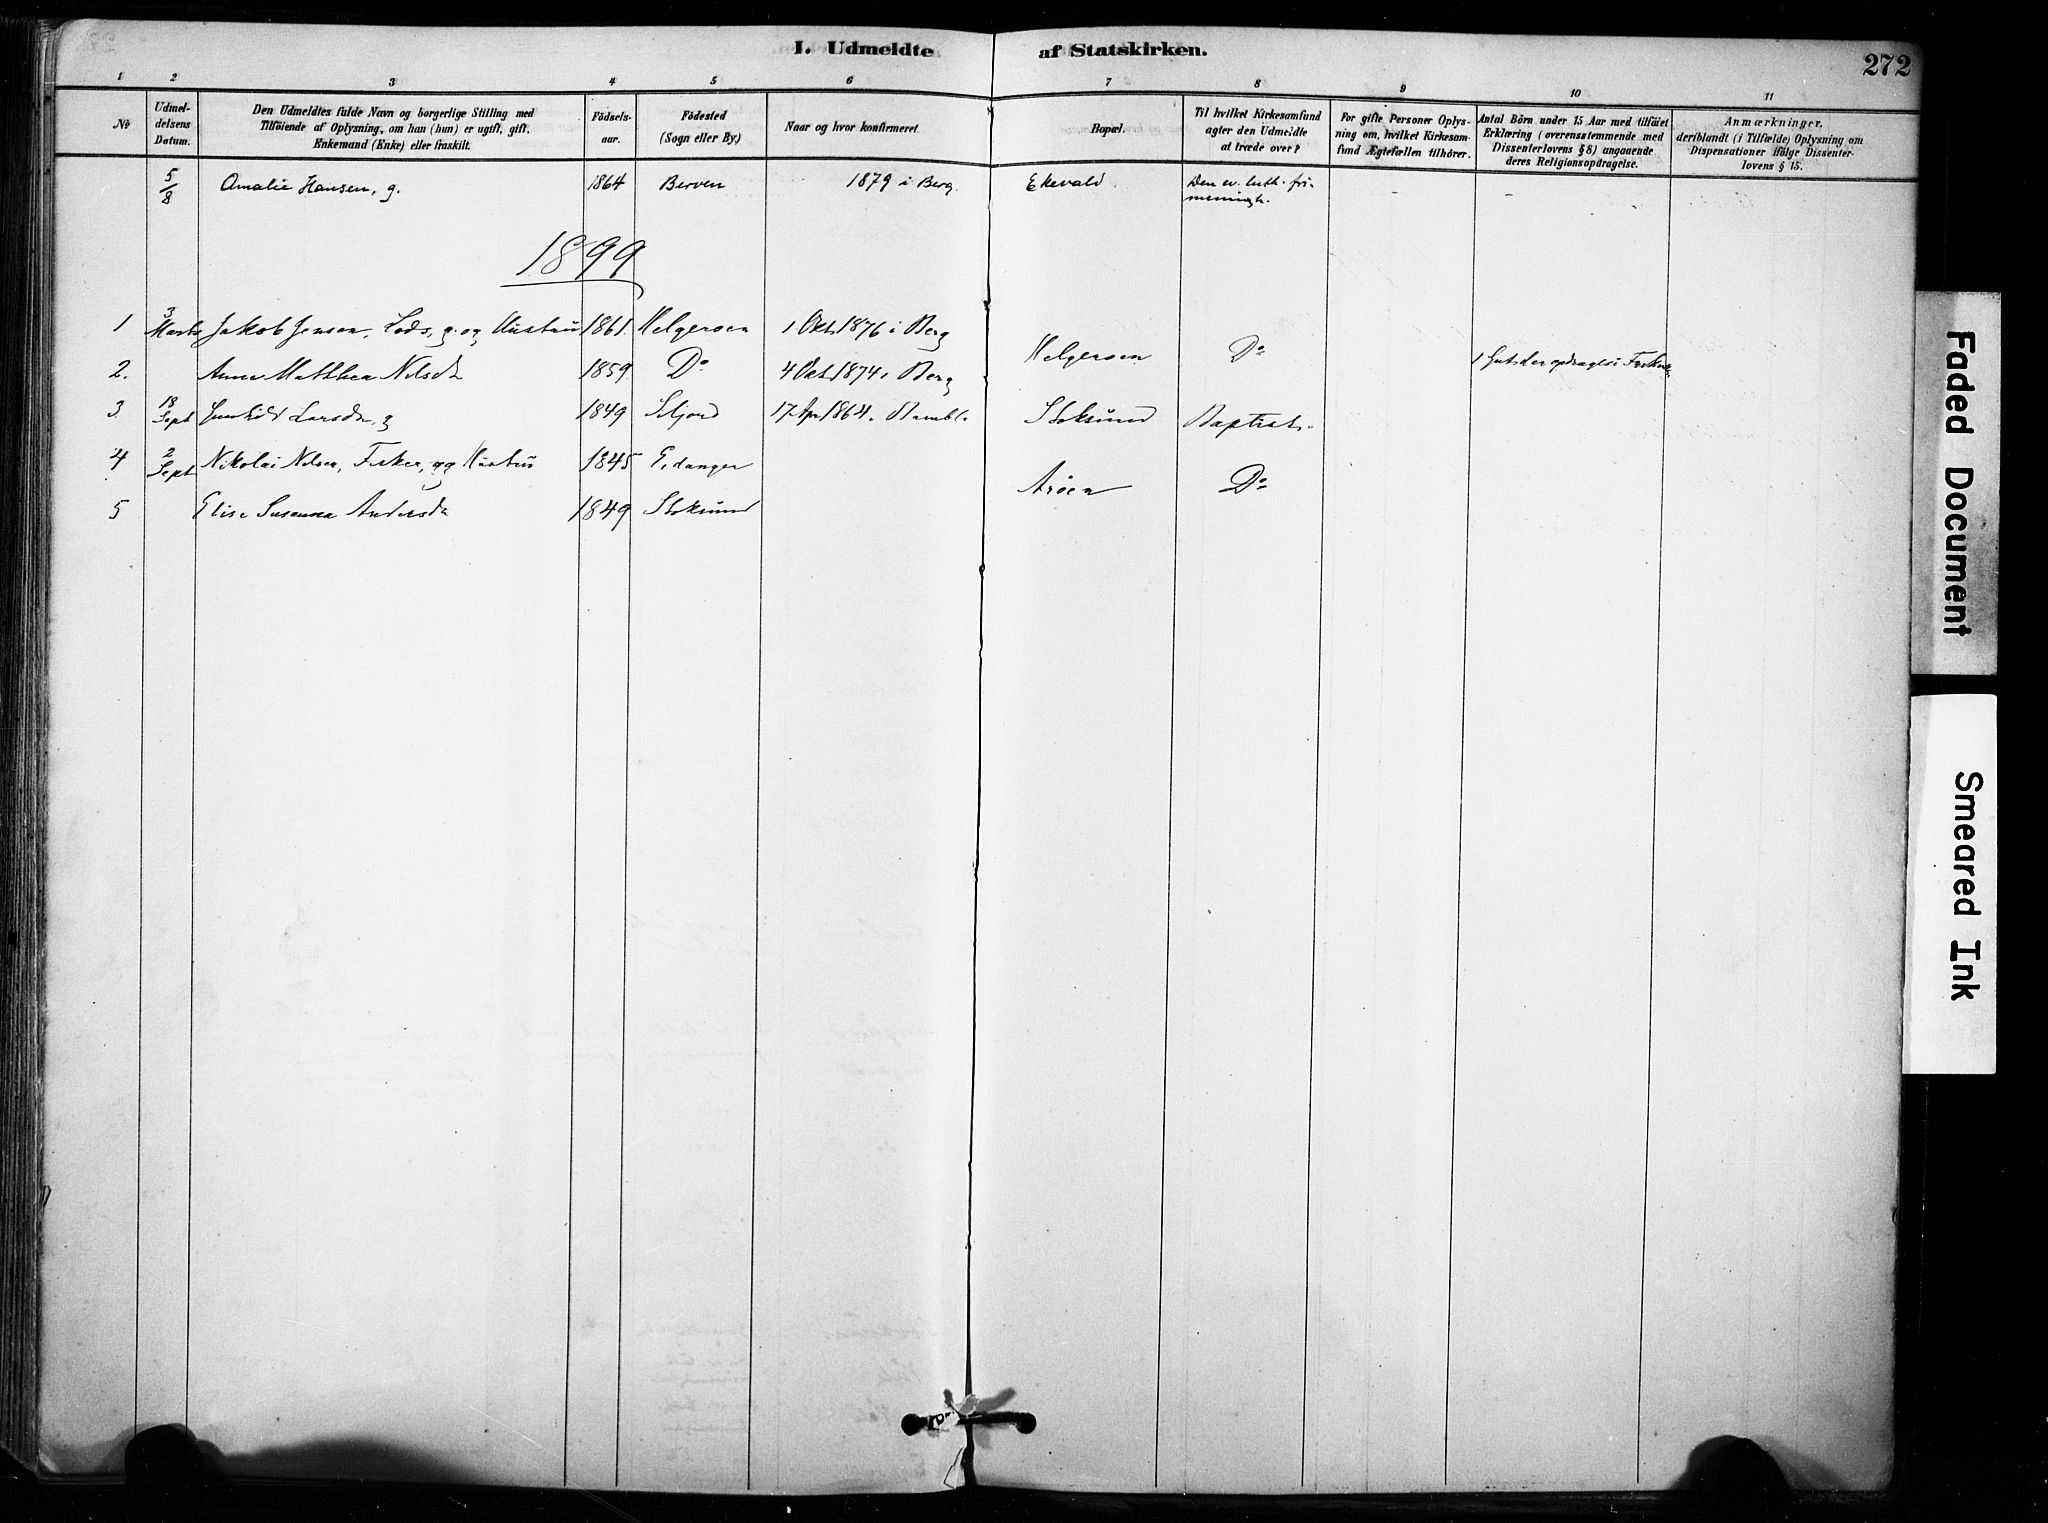 I. Udmeldte af Statskirken.
272
1 2 3 4 5 6 7 8 9 10 11
№
Udmel-
delsens
Datum.
Den Udmeldtes fulde Navn og borgerlige Stilling med
Tilföiende af Oplysning, om han (hun) er ugift, gift,
Enkemand (Enke) eller fraskilt.
Födsels-
aar.
Födested
(Sogn eller By.)
Naar og hvor konfirmeret.
Bopæl.
Til hvilket Kirkesamfund
agter den Udmeldte
at træde over?
For gifte Personer Oplys-
ning om, hvilket Kirkesam-
fund Ægtefællen tilhörer.
Antal Börn under 15 Aar med tilföiet
Erklæring (overensstemmende med
Dissenterlovens § 8) angaaende
deres Religionsopdragelse.
Anmærkninger,
deriblandt (i Tilfælde) Oplysning om
Dispensationer ifölge Dissenter-
lovens § 15.
5/8 Amalie Hansen, g. 1864 Berven 1879 i Berg. Ekevald. Den ev. luth. fri- - -
menigh.
1899
1 3 Marts Jakob Jensen, Lods, g. og Hustru 1861. Helgeroen 1 Okt 1876 i Berg
Helgeroen Do
2. Anna Mathea Nilsdt 1859 Do 4 Okt 1874 i Berg
3 18 Sept Gunhild Larsdr, g 1849 Siljord 17 Apr 1864. Bamble Stoksund Baptist.
4 2 Sept Nikolai Nilsen, Fisker, g og Hustru 1845 Eidanger
Arøen Do
5 Elise Susanna Andersdr 1849 Stoksund
Faded Document
Smeared Ink